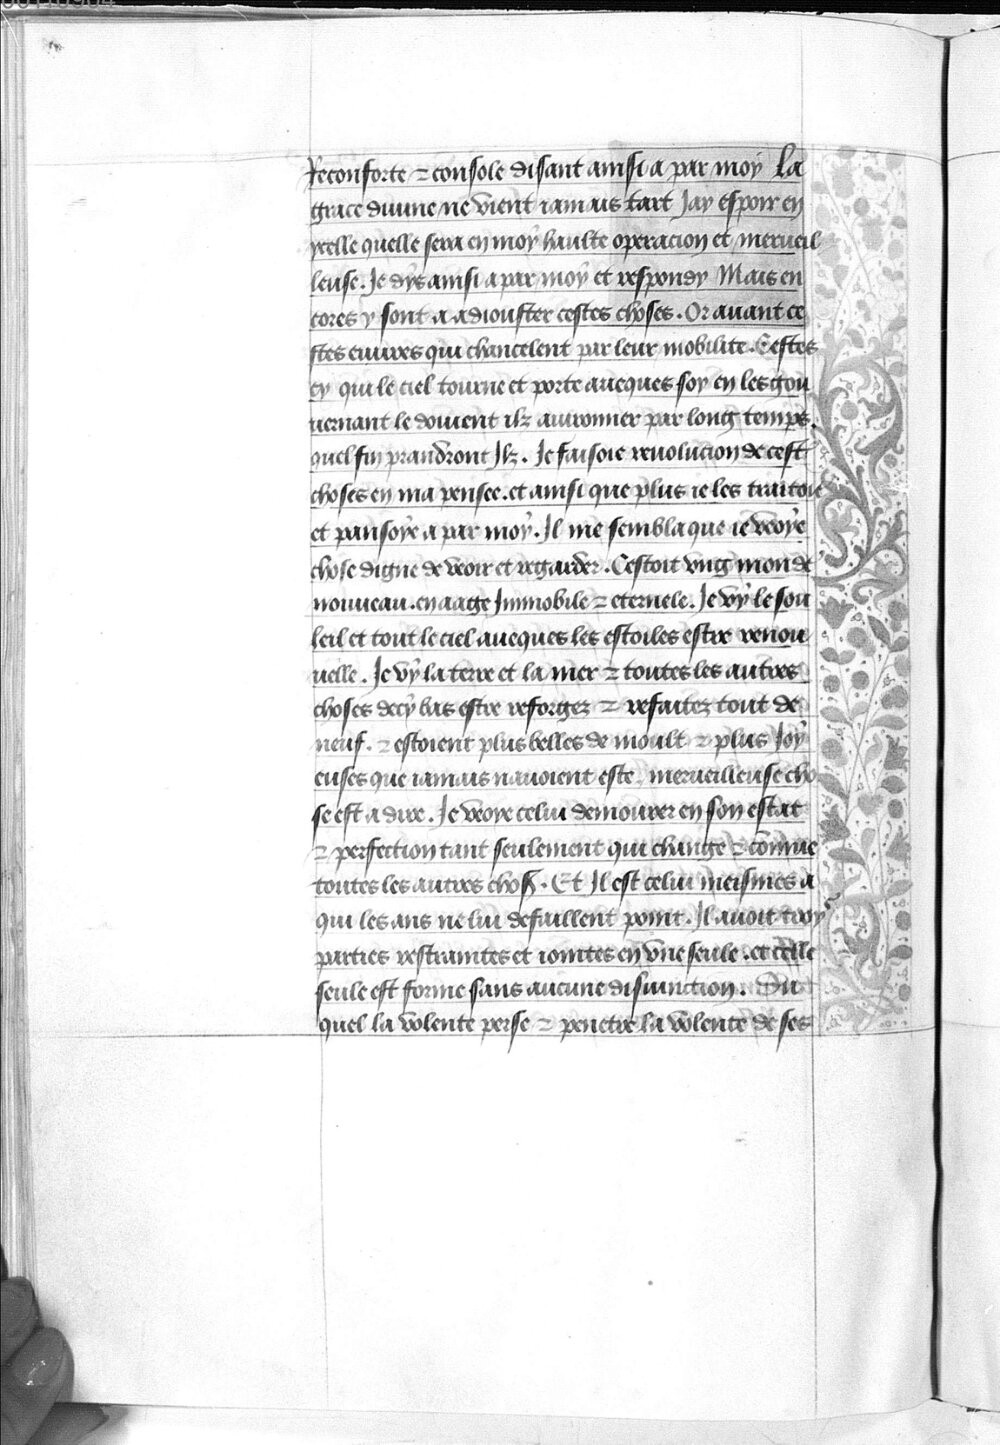 Reconforte ⁊ console disant ainsi a par moy La
grace diuine ne vient iamais tart Jay espoir en
ycelle quelle sera en moy haulte operacion et merueil
leuse. Je dys ainsi a par moy et respondy Mais en
cores y sont a adiouster cestes choses. Or auant ce
stes euures qui chancelent par leur mobilite. Cestes
cy qui le ciel tourne et porte aueques soy en les gou
uernant le doiuent ilz auironner par long temps.
quel fin prandront Ilz. Je faisoie reuolucion de cest
choses en ma pensee. et ainsi que plus ie les traitoie
et pansoye a par moy. Il me sembla que ie veoye
chose digne de veoir et regarder. Cestoit vng monde
nouueau. en aage Immobile ⁊ eternele. Je vy le sou
leil et tout le ciel aueques les estoiles estre renou
uelle. Je vy la terre et la mer ⁊ toutes les autres
choses decy bas estre reforgez ⁊ refaitez tout de
neuf. ⁊ estoient plus belles de moult ⁊ plus Joy
euses que iamais nauoient este. merueilleuse cho
se est a dire. Je veoye celui demourer en son estat
⁊ perfection tant seulement qui change ⁊ commue
toutes les autres chos. Et Il est celui meismes a
qui les ans ne lui defaillent point. Il auoit troy
parties restraintes et iointes en vne seule. et celle
seule est forme sans aucune disiunction. Du
quel la volente perse ⁊ penetre la volente de ses